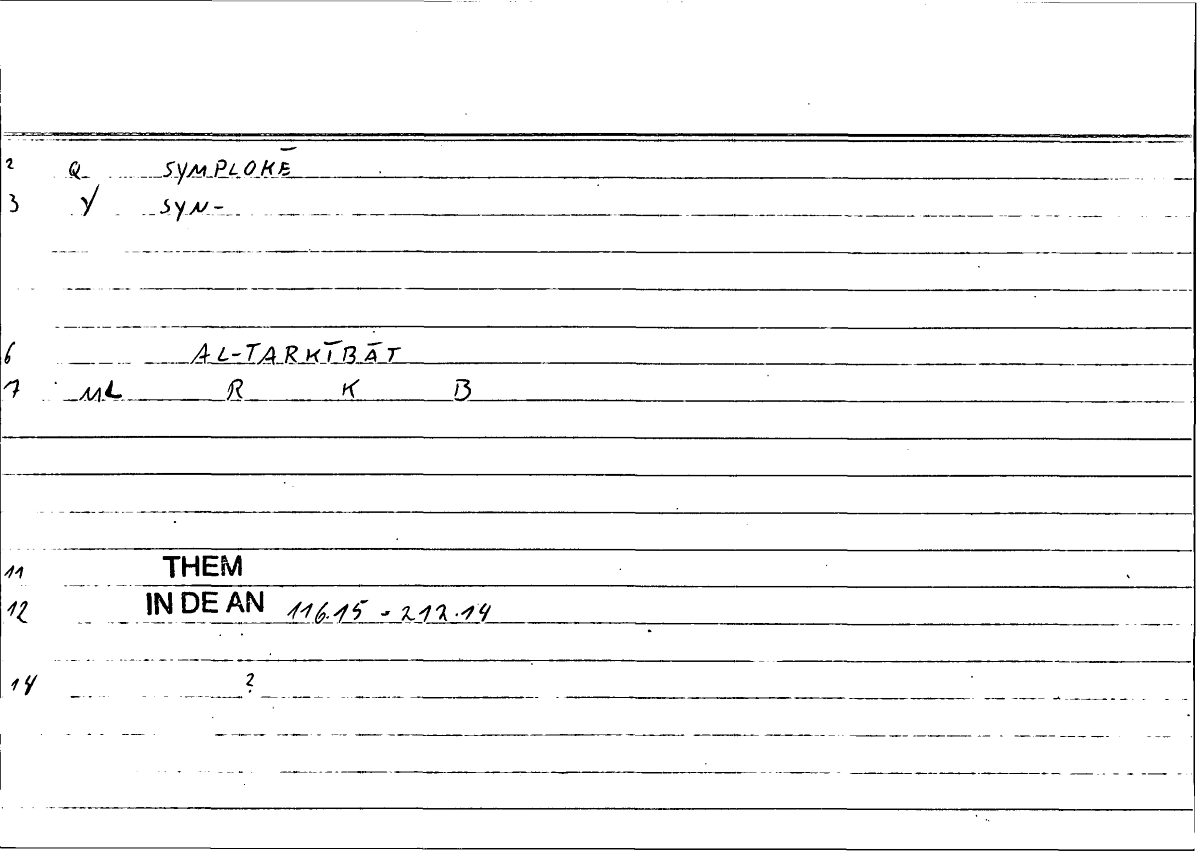 2 Q SYMPLOKĒ
3 Y SYN-
6 AL-TARKĪBĀT
7 ML R K B
11 THEM
12 IN DE AN 116.15 - 212.14
14 ?